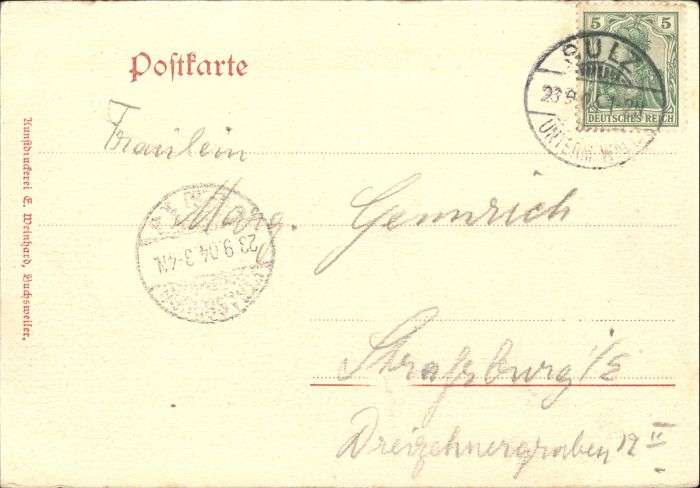 Postkarte
5 5
DEUTSCHES REICH
SULZ
23 9
UNTERM WALD
Fräulein
Marg. Gemrich
23.9.04.3-4N.
Straßburg i/E
Dreizehnergraben 19 II
Kunstdruckerei E. Weinhard, Buchsweiler.